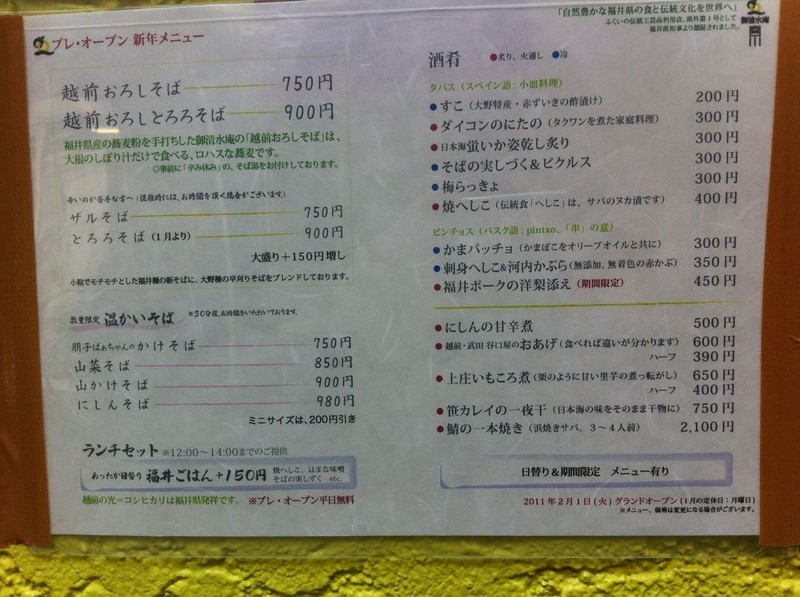 プレ・オープン 新年メニュー
越前おろしそば 750円
越前おろしとろろそば 900円
福井県産の蕎麦粉を手打ちした御清水庵の「越前おろしそば」は、
大根のしぼり汁だけで食べる、ロハスな蕎麦です。
◎事前に「辛み休み」の、そば湯をお付けしております。
辛いのが苦手な方へ(混雑時には、お時間を頂く場合がございます。)
ザルそば 750円
とろろそば(1月より) 900円
大盛り+150円増し
小粒でモチモチとした福井種の新そばに、大野種の早刈りそばをブレンドしております。
数量限定 温かいそば ※30分程、お時間をいただいております。
朋子ばぁちゃんのかけそば 750円
山菜そば 850円
山かけそば 900円
にしんそば 980円
ミニサイズは、200円引き
ランチセット ※12:00~14:00までのご提供
あったか日替り 福井ごはん+150円 焼へしこ、はまな味噌
そばの実しずく etc.
越前の光=コシヒカリは福井県発祥です。 ※プレ・オープン平日無料
「自然豊かな福井県の食と伝統文化を世界へ」
ふくいの伝統工芸品利用店、県外第1号として
福井県知事より認証されました。
御清水庵
酒肴 ●炙り、火通し ●冷
タパス(スペイン語:小皿料理)
●すこ(大野特産・赤ずいきの酢漬け) 200円
●ダイコンのにたの(タクワンを煮た家庭料理) 300円
●日本海蛍いか姿乾し炙り 300円
●そばの実しづく&ピクルス 300円
●梅らっきょ 300円
●焼へしこ(伝統食「へしこ」は、サバのヌカ漬です) 400円
ピンチョス(バスク語:pintxo、「串」の意)
●かまパッチョ(かまぼこをオリーブオイルと共に) 300円
●刺身へしこ&河内かぶら(無添加、無着色の赤かぶ) 350円
●福井ポークの洋梨添え(期間限定) 450円
●にしんの甘辛煮 500円
●越前・武田 谷口屋のおあげ(食べれば違いが分かります) 600円
ハーフ 390円
●上庄いもころ煮(栗のように甘い里芋の煮っ転がし) 650円
ハーフ 400円
●笹カレイの一夜干(日本海の味をそのまま干物に) 750円
●鯖の一本焼き(浜焼きサバ。3~4人前) 2,100円
日替り&期間限定 メニュー有り
2011年2月1日(火)グランドオープン(1月の定休日:月曜日)
※メニュー、価格は変更になる場合がございます。